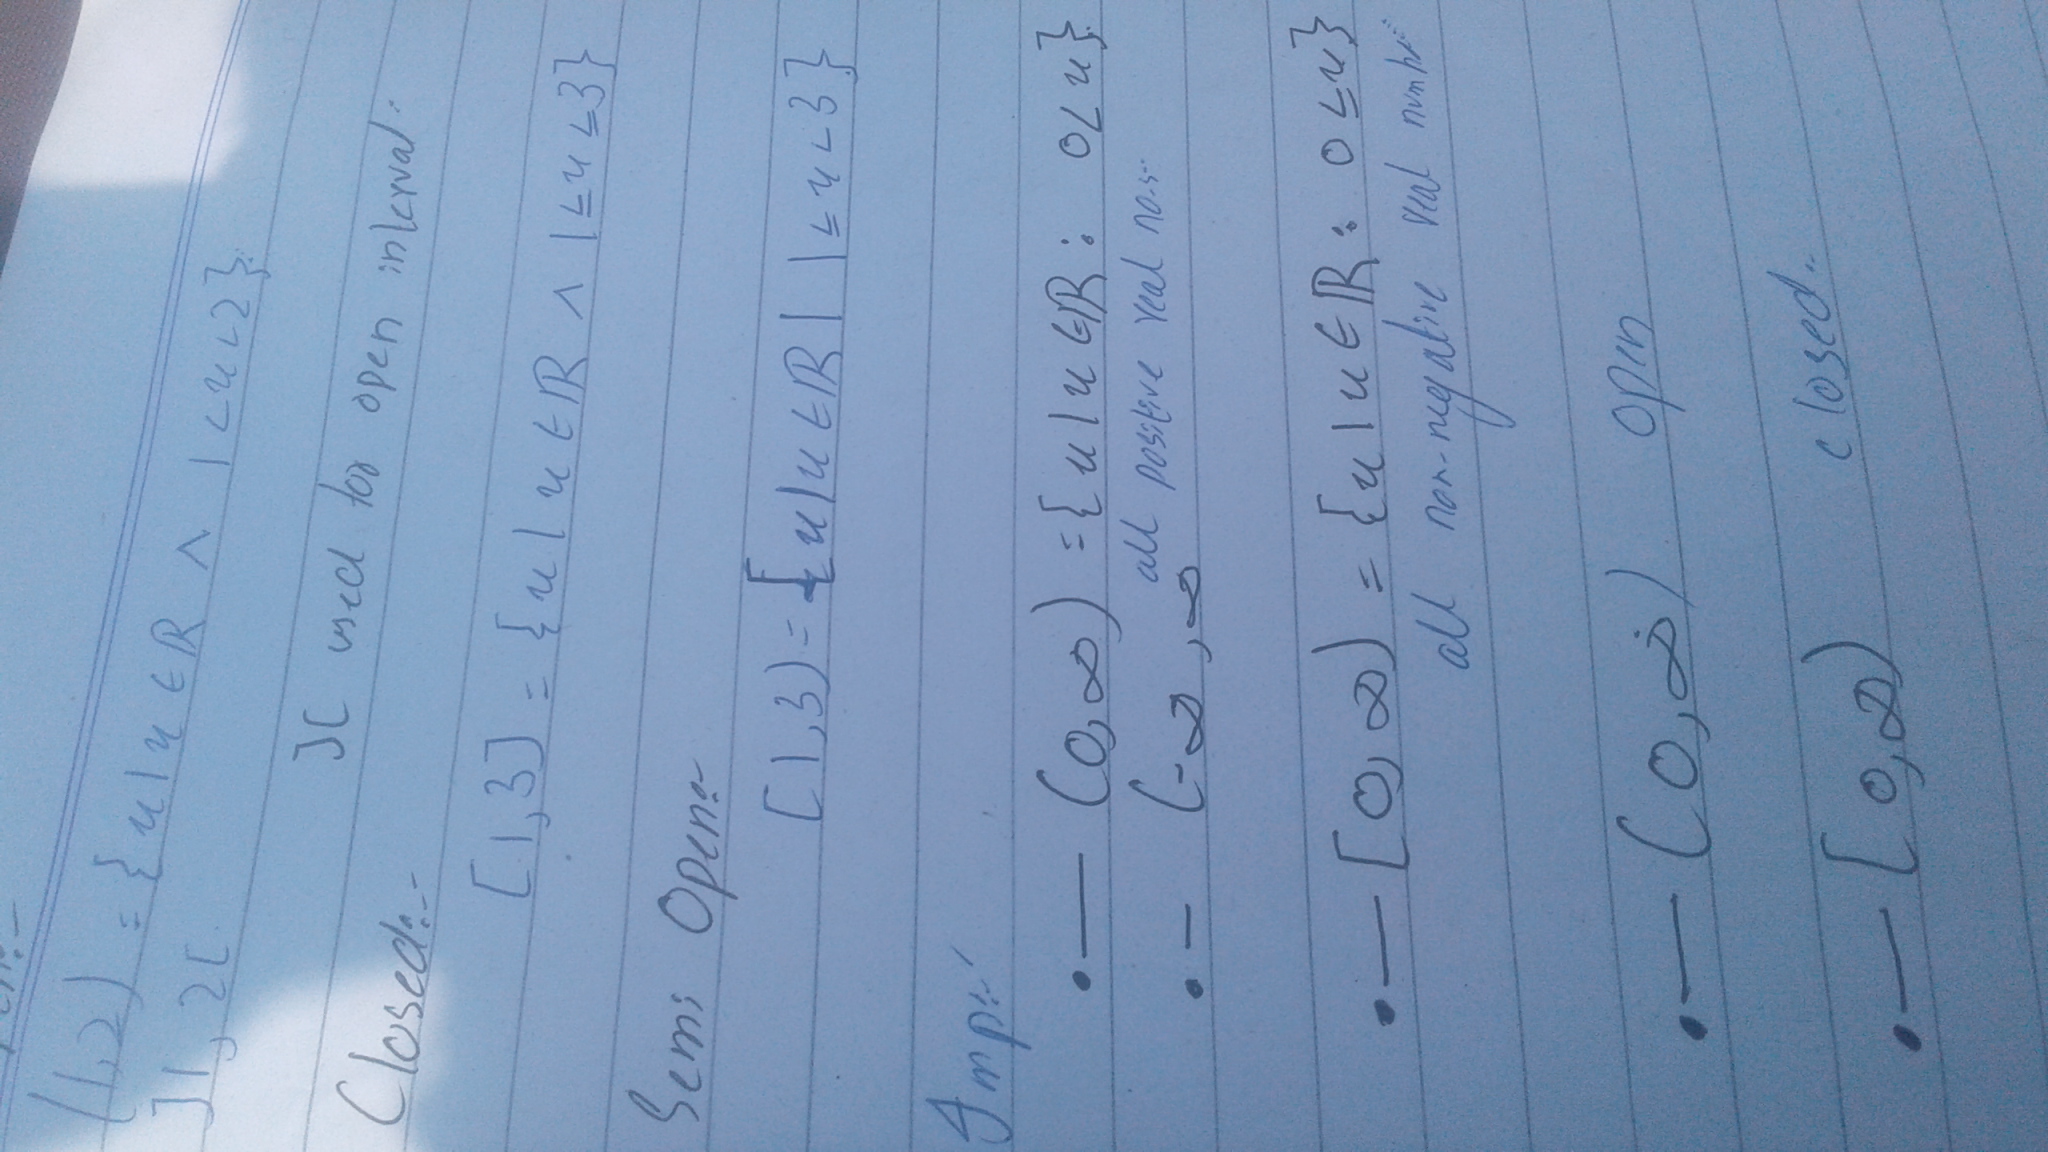 (1,2) = {x | x ∈ ℝ ∧ 1 < x < 2}
]1, 2[
][ used for open interval.
Closed:-
[1,3] = {x | x ∈ ℝ ∧ 1 ≤ x ≤ 3}
Semi Open:-
[1,3) = {x | x ∈ ℝ | 1 ≤ x < 3}
Imp:-
•— (0,∞) = {x | x ∈ ℝ : 0 < x}
all positive real no.s.
•— (-∞, ∞
•— [0, ∞) = {x | x ∈ ℝ : 0 ≤ x}
all non-negative real
•— (0, ∞) open
•— [0, ∞) closed.